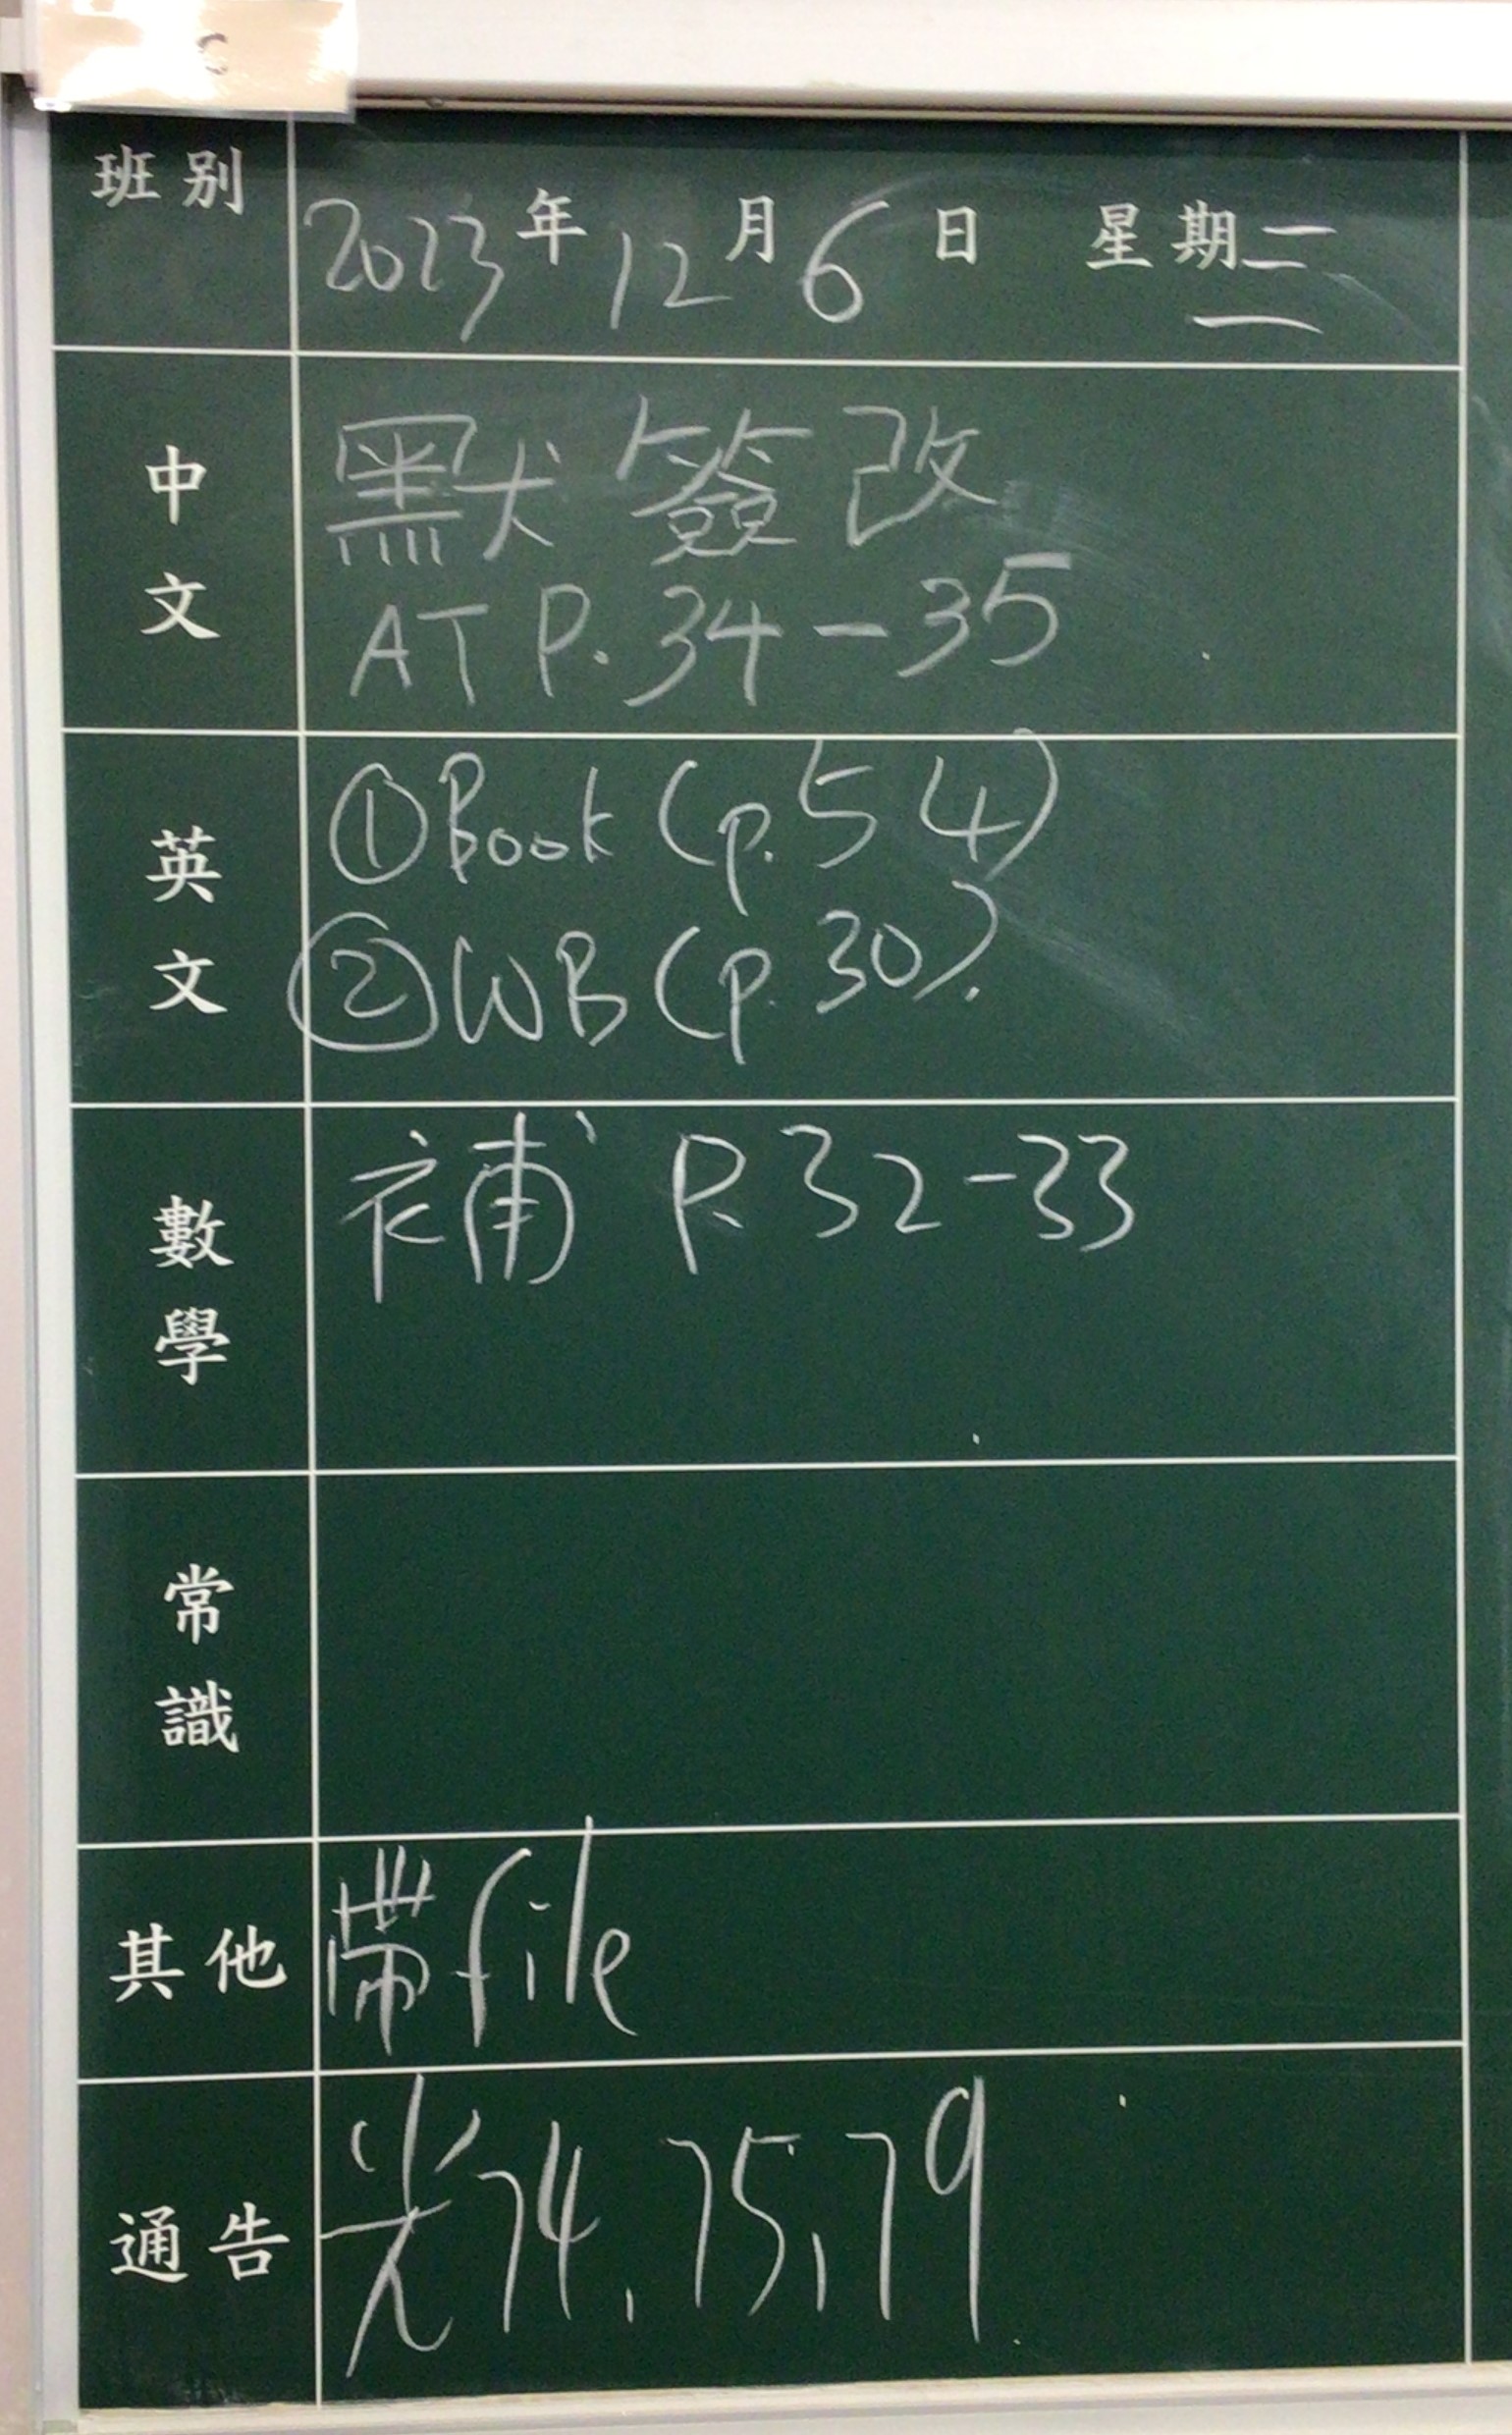 C
班別
2023年12月6日 星期三
中文
默簽改
AT P.34-35
英文
①Book (p.54)
②WB (p.30).
數學
補 P.32-33
常識
其他
帶file
通告
光74,75,79